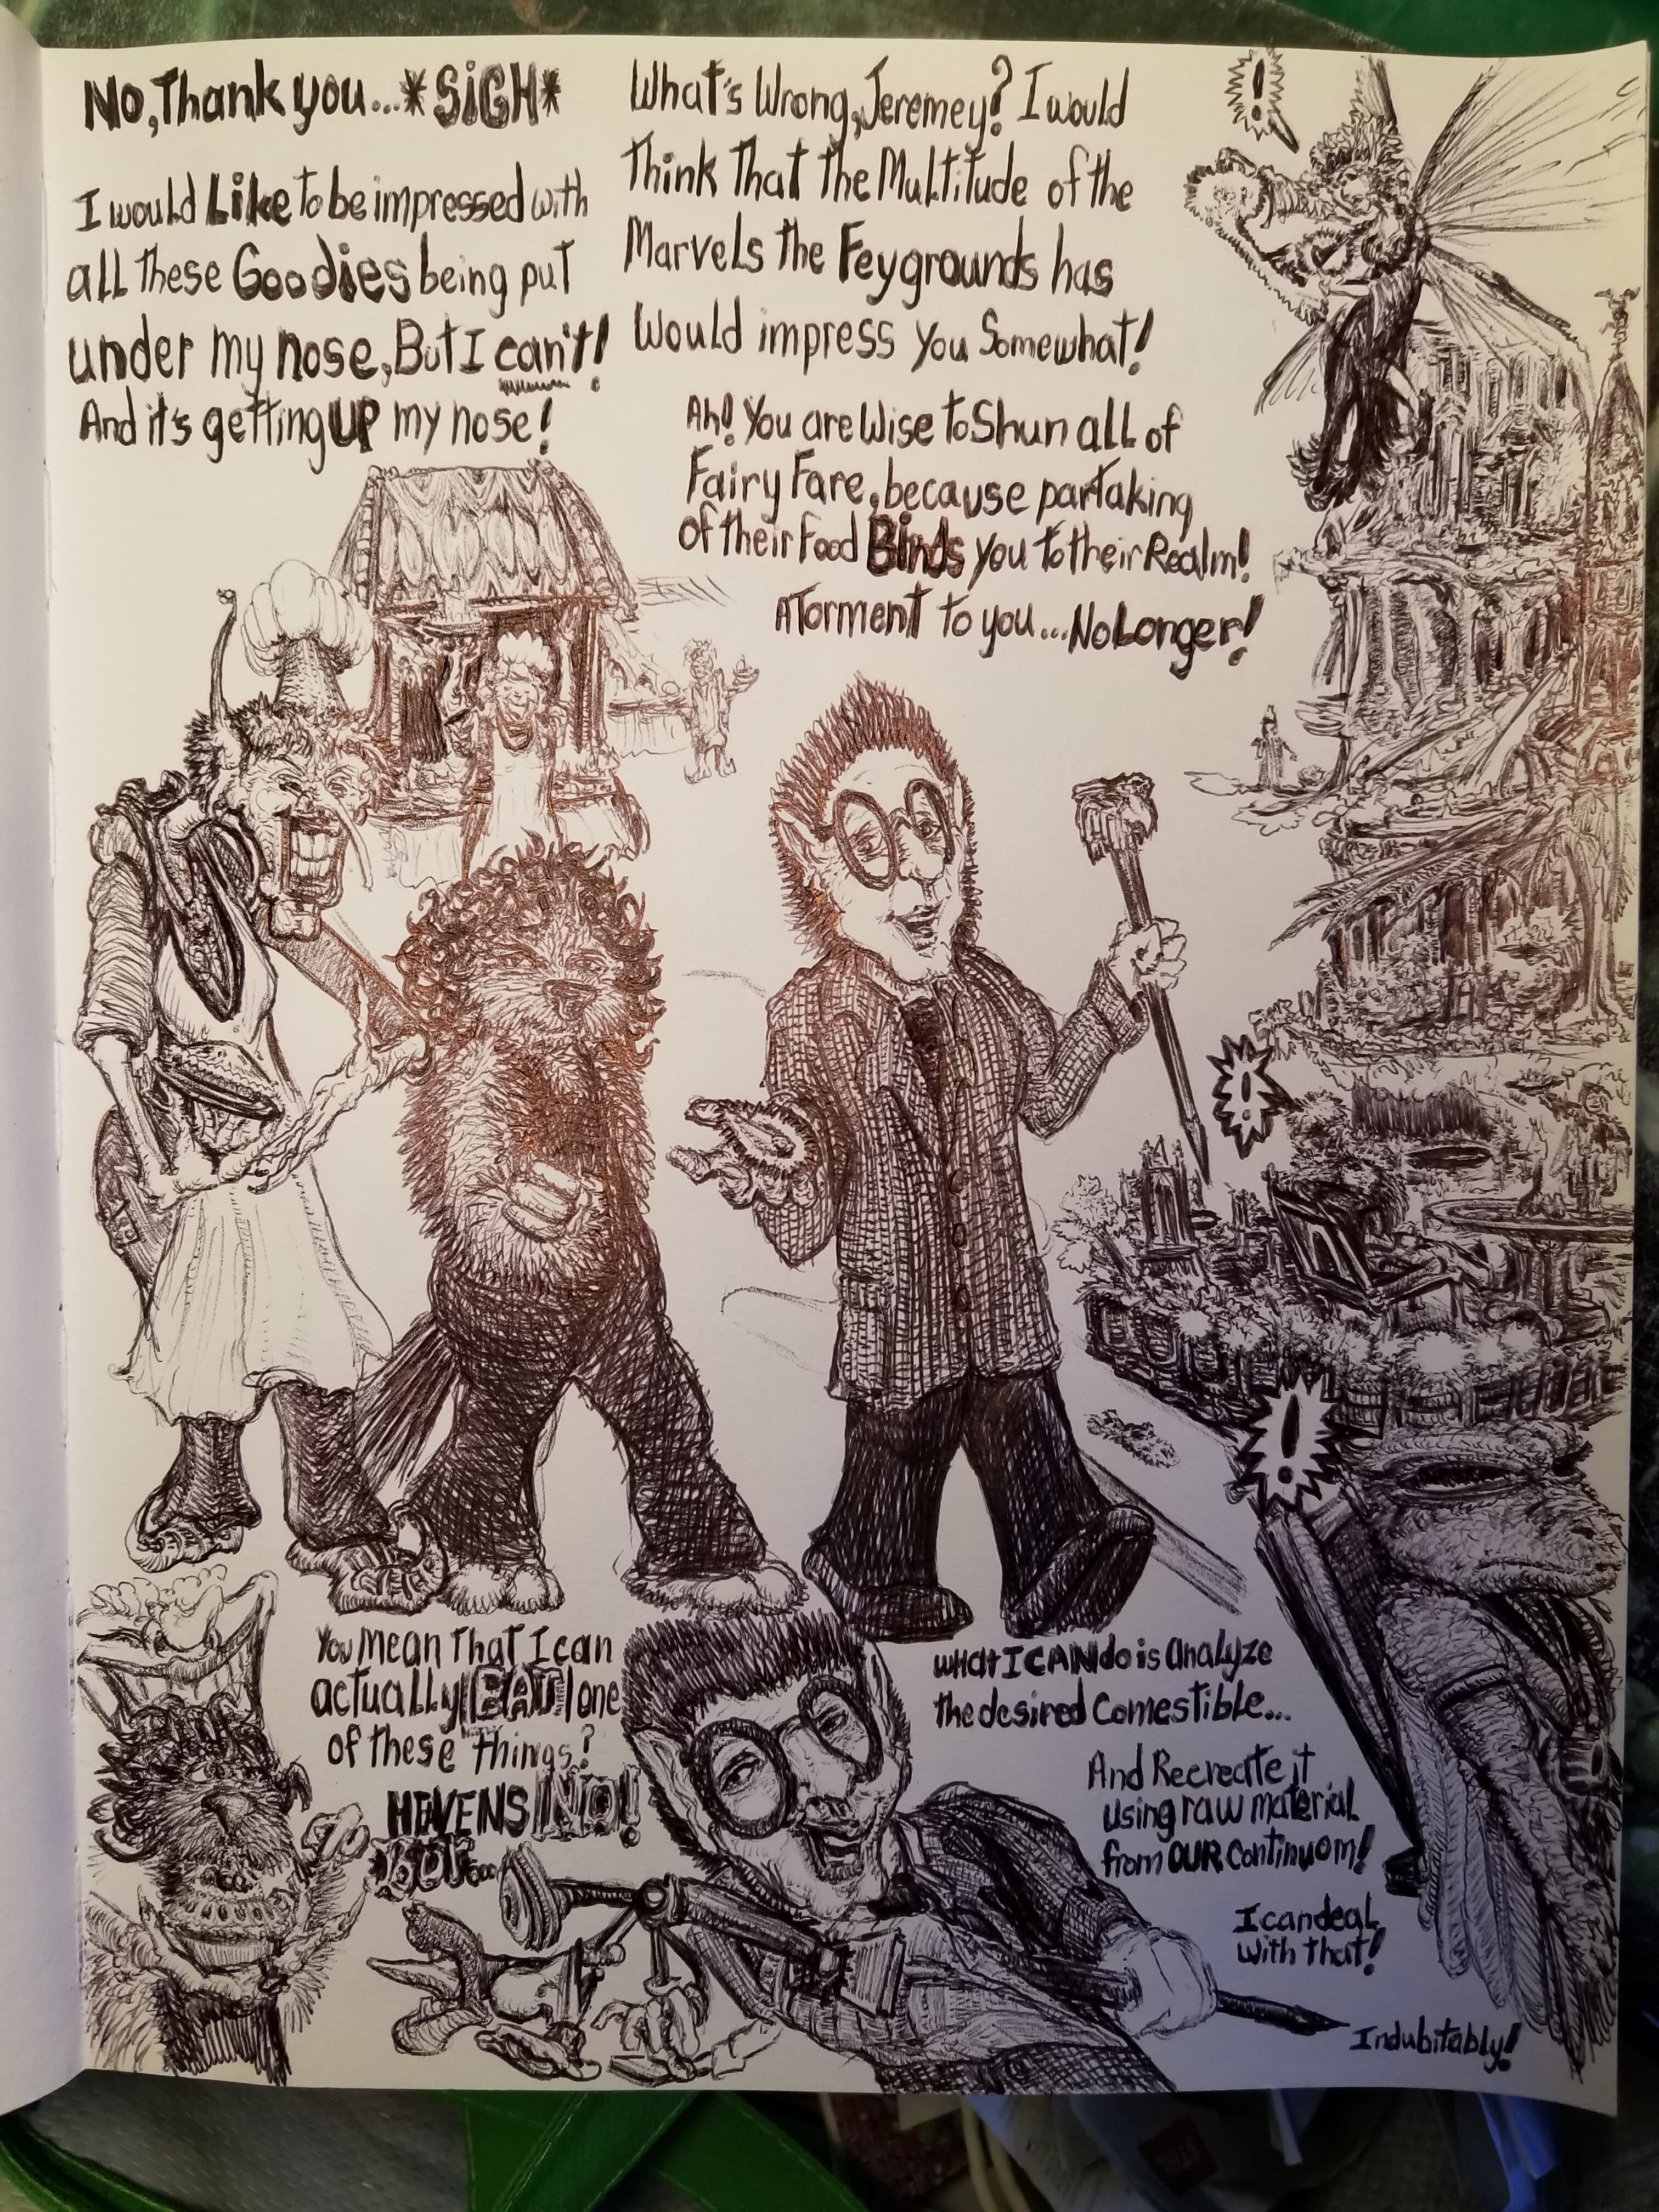 No, Thank you...*SIGH*
I would Like to be impressed with
all These Goodies being put
under my nose, But I can't!
And it's getting UP my nose!
What's Wrong, Jeremey? I would
Think That The Multitude of the
Marvels The Feygrounds has
Would impress you Somewhat!
Ah! You are Wise to Shun all of
Fairy Fare, because partaking
of their Food Binds you to their Realm!
A Torment to you...No Longer!
!
!
!
You Mean That I can
actually EAT one
of these things?
HEVENS NO!
BUT...
WHAT I CAN do is analyze
the desired Comestible...
And Recreate it
using raw material
from OUR Continuom!
I can deal
with that!
Indubitably!